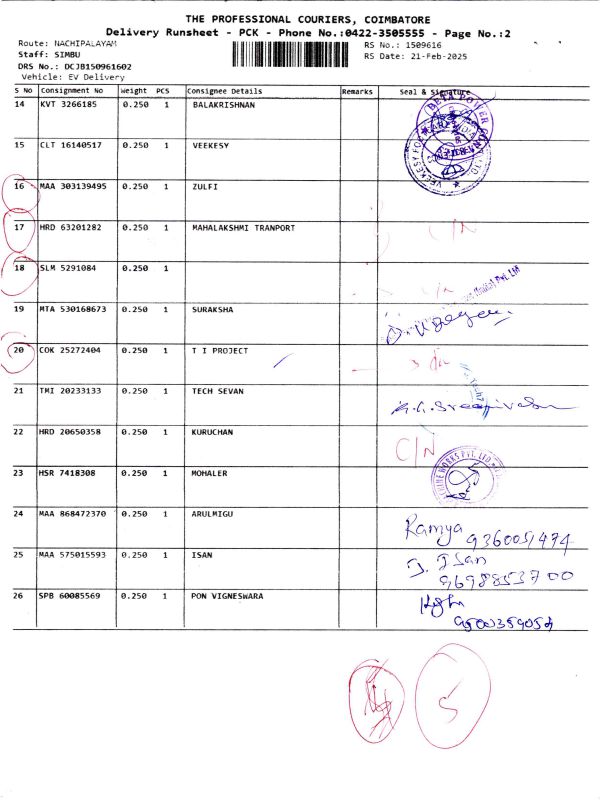 THE PROFESSIONAL COURIERS, COIMBATORE
Delivery Runsheet - PCK - Phone No.:0422-3505555 - Page No.:2
Route: NACHIPALAYAM
RS No.: 1509616
Staff: SIMBU
RS Date: 21-Feb-2025
DRS No.: DCJB150961602
Vehicle: EV Delivery
S No Consignment No Weight PCS Consignee Details Remarks Seal & Signature
14 KVT 3266185 0.250 1 BALAKRISHNAN
15 CLT 16140517 0.250 1 VEEKESY
16 MAA 303139495 0.250 1 ZULFI
17 HRD 63201282 0.250 1 MAHALAKSHMI TRANPORT C/N
18 SLM 5291084 0.250 1 C/N
19 MTA 530168673 0.250 1 SURAKSHA
20 COK 25272404 0.250 1 T I PROJECT
21 TMI 20233133 0.250 1 TECH SEVAN
22 HRD 20650358 0.250 1 KURUCHAN C/N
23 HSR 7418308 0.250 1 MOHALER
24 MAA 868472370 0.250 1 ARULMIGU Ramya
9360051474
25 MAA 575015593 0.250 1 ISAN J. Isan
9698853700
26 SPB 60085569 0.250 1 PON VIGNESWARA
5